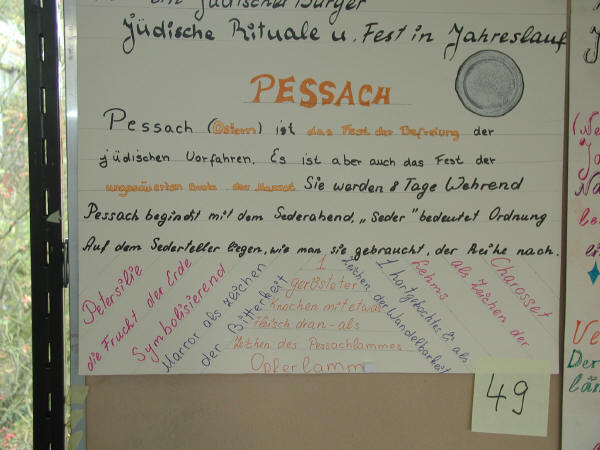 ein jüdischer Bürger
Jüdische Rituale u. Fest in Jahreslauf
PESSACH
Pessach (Ostern) ist das Fest der Befreiung der
jüdischen Vorfahren. Es ist aber auch das Fest der
ungesäuerten Brote der Massot Sie werden 8 Tage Wehrend
Pessach begindt mit dem Sederabend, „Seder" bedeutet Ordnung
Auf dem Sederteller liegen, wie man sie gebraucht, der Reihe nach.
Petersilie
die Frucht der Erde
Symbolisierend
Marror als Zeichen
der Bitterkeit
1
gerösteter
Knochen mit etwas
Fleisch dran - als
Zeichen des Pessachlammes
Opferlamm
Zeichen der Wandelbarkeit
1 hartgekochtes Ei als
Lehms
als Zeichen der
Charosset
49